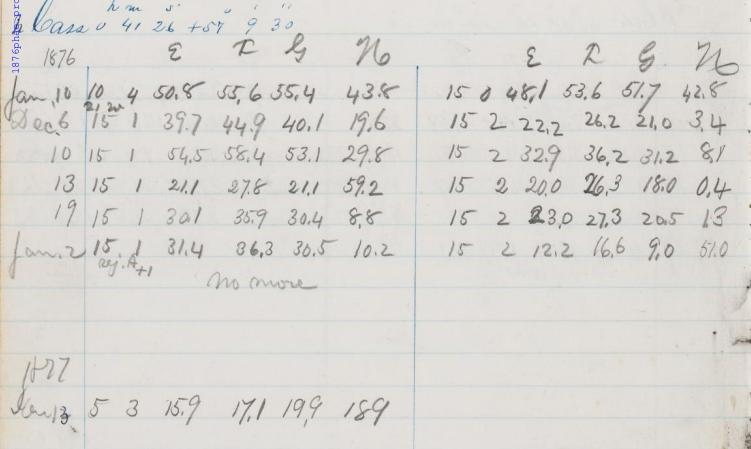 Cass 0 41 26 +57 9 30
h m s ° ' "
1876 E I G N E I G N
Jan, 10 10 4 50.8 55,6 35.4 43.8 15 0 48,1 53.6 51.7 42.8
Dec 6 15 1 39.7 44.9 40.1 19.6 15 2 22,2 26.2 21,0 3,4
10 15 1 54,5 58.4 53.1 29.8 15 2 32.9 36,2 31.2 8,1
13 15 1 21.1 27.8 21,1 59.2 15 2 20,0 26,3 18.0 0,4
19 15 1 30.1 35.9 30.4 8,8 15 2 23,0 27,3 20.5 1.3
Jan. 2 15 1 31.4 36,3 30,5 10.2 15 2 12.2 16,6 9,0 51.0
rej. A +1
no more
1877
13 5 3 15.9 17,1 19,9 18.9